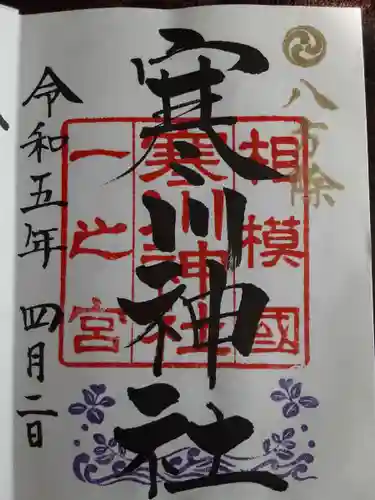 八方除
寒川神社
相模國
寒川神社
一之宮
令和五年 四月二日